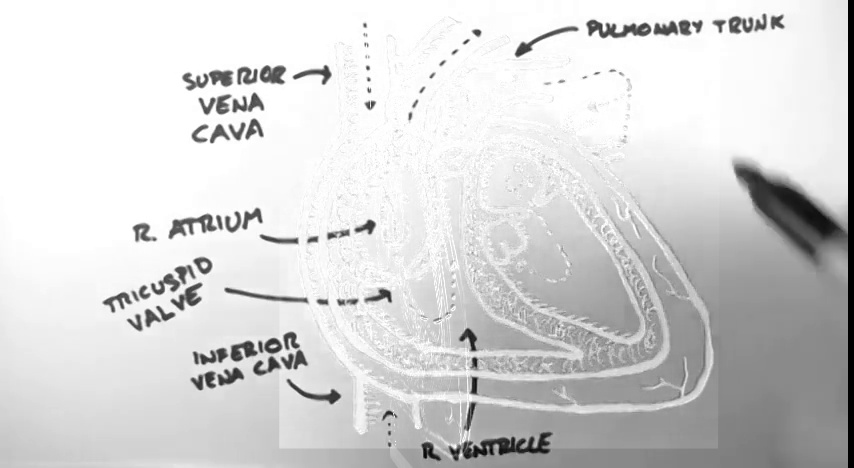 PULMONARY TRUNK
SUPERIOR
VENA
CAVA
R. ATRIUM
TRICUSPID
VALVE
INFERIOR
VENA CAVA
R. VENTRICLE